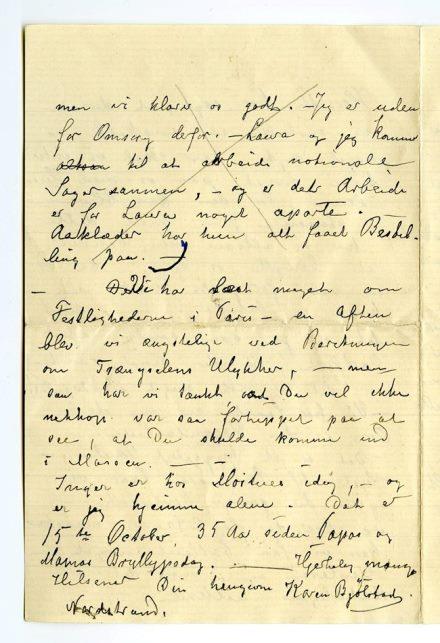 men vi klarer os godt. – Jeg er uden
for Omsorg derfor. – Laura og jeg kommer
altsaa til at arbeide nationale
Sager sammen, – og er dette Arbeide
er for Laura noget aparte.
Aaklæder har hun alt faaet Bestil-
ling paa. –
– Vi har læst meget om
Festlighederne i Paris – en Aften
blev vi ængstelige ved Beretningen
om Trængselens Ulykker, – men
saa har vi tænkt, at Du vel ikke
netop var saa forhippet paa at
see, at Du skulde komme ind
i Massen. — —
Inger er hos idag, – og
er jeg hjemme alene. Det er
15de October, 35 Aar siden Papas og
Mamas Bryllupsdag. —— Hjertelig mange
Hilsener Din hengivne Karen Bjølstad.
Nordstrand.